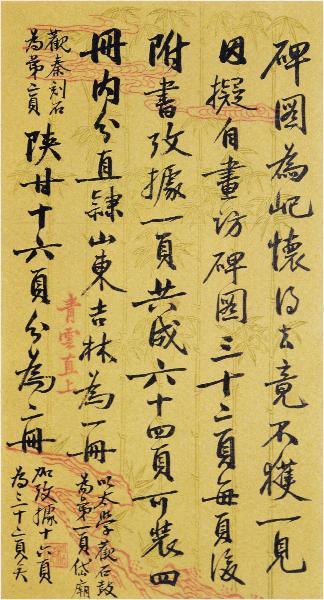 碑圖為屺懷得去竟不獲一見
因擬自畫訪碑圖三十二頁每頁後
附書攷據一頁共成六十四頁可裝四
冊内分直隸山東吉林為一冊
以太學觀石鼓
為第一頁岱廟
觀秦刻石
為第二頁
陝甘十六頁分為二冊
加攷據十六頁
為三十二頁矣
青雲直上